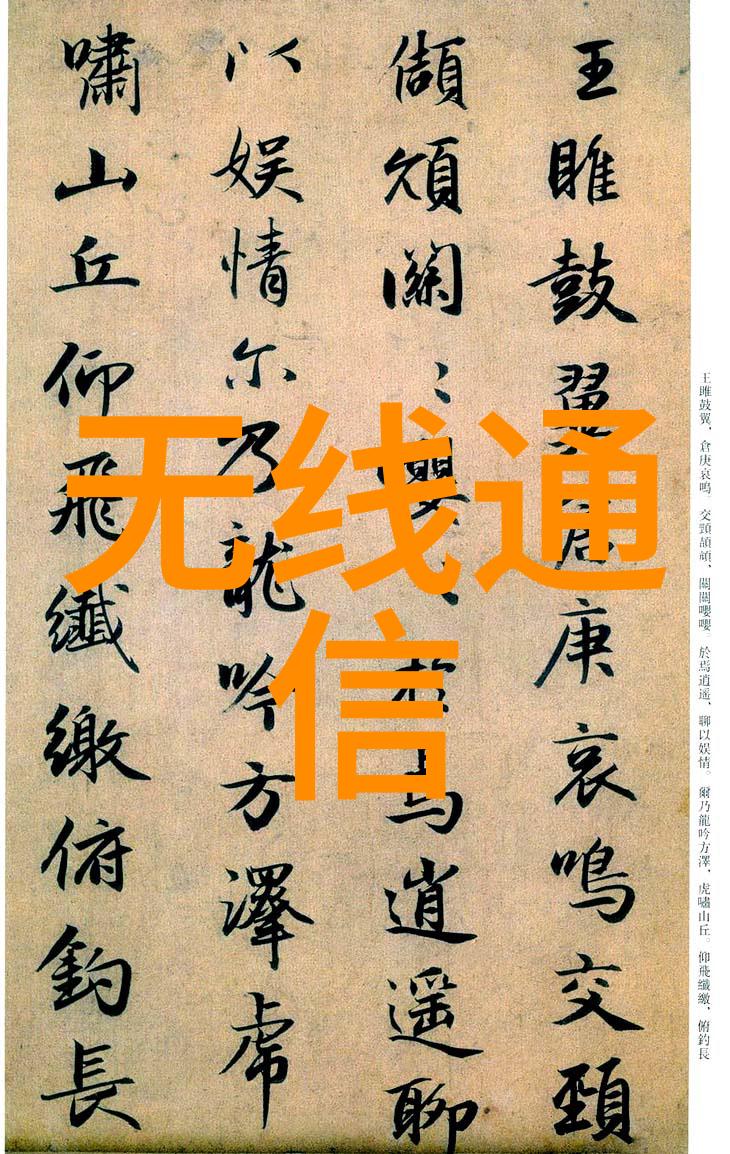 王雎鼓翼倉庚哀鳴交頸
頡頏關〻嚶〻於焉逍遥聊
以娱情尔乃龍吟方澤虎
嘯山丘仰飛纖繳俯釣長
王雎鼓翼、倉庚哀鳴。交頸頡頏、關關嚶嚶。於焉逍遥、聊以娱情。爾乃龍吟方澤、虎嘯山丘。仰飛纖繳、俯釣長
无线通
信